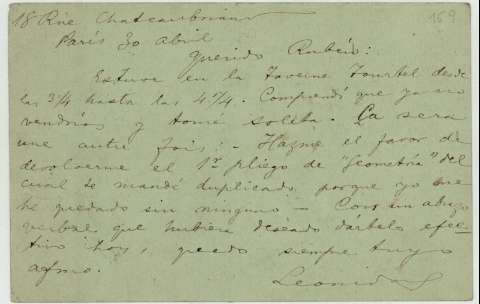 18 Rue Chateaubriand
159
París 30 Abril
Querido Rubén:
Estuve en la Taverne Tourtel desde
las 3¾ hasta las 4¼. Comprendí que ya no
vendrías y tomé soleta. Ça sera
une autre fois: - Hazme el favor de
devolverme el 1er pliego de "Geometría" del
cual te mandé duplicado, porque yo me
he quedado sin ninguno — Con un abrazo
verbal que hubiera deseado dártelo efec-
tivo hoy, quedo siempre tuyo
afmo.
Leonidas